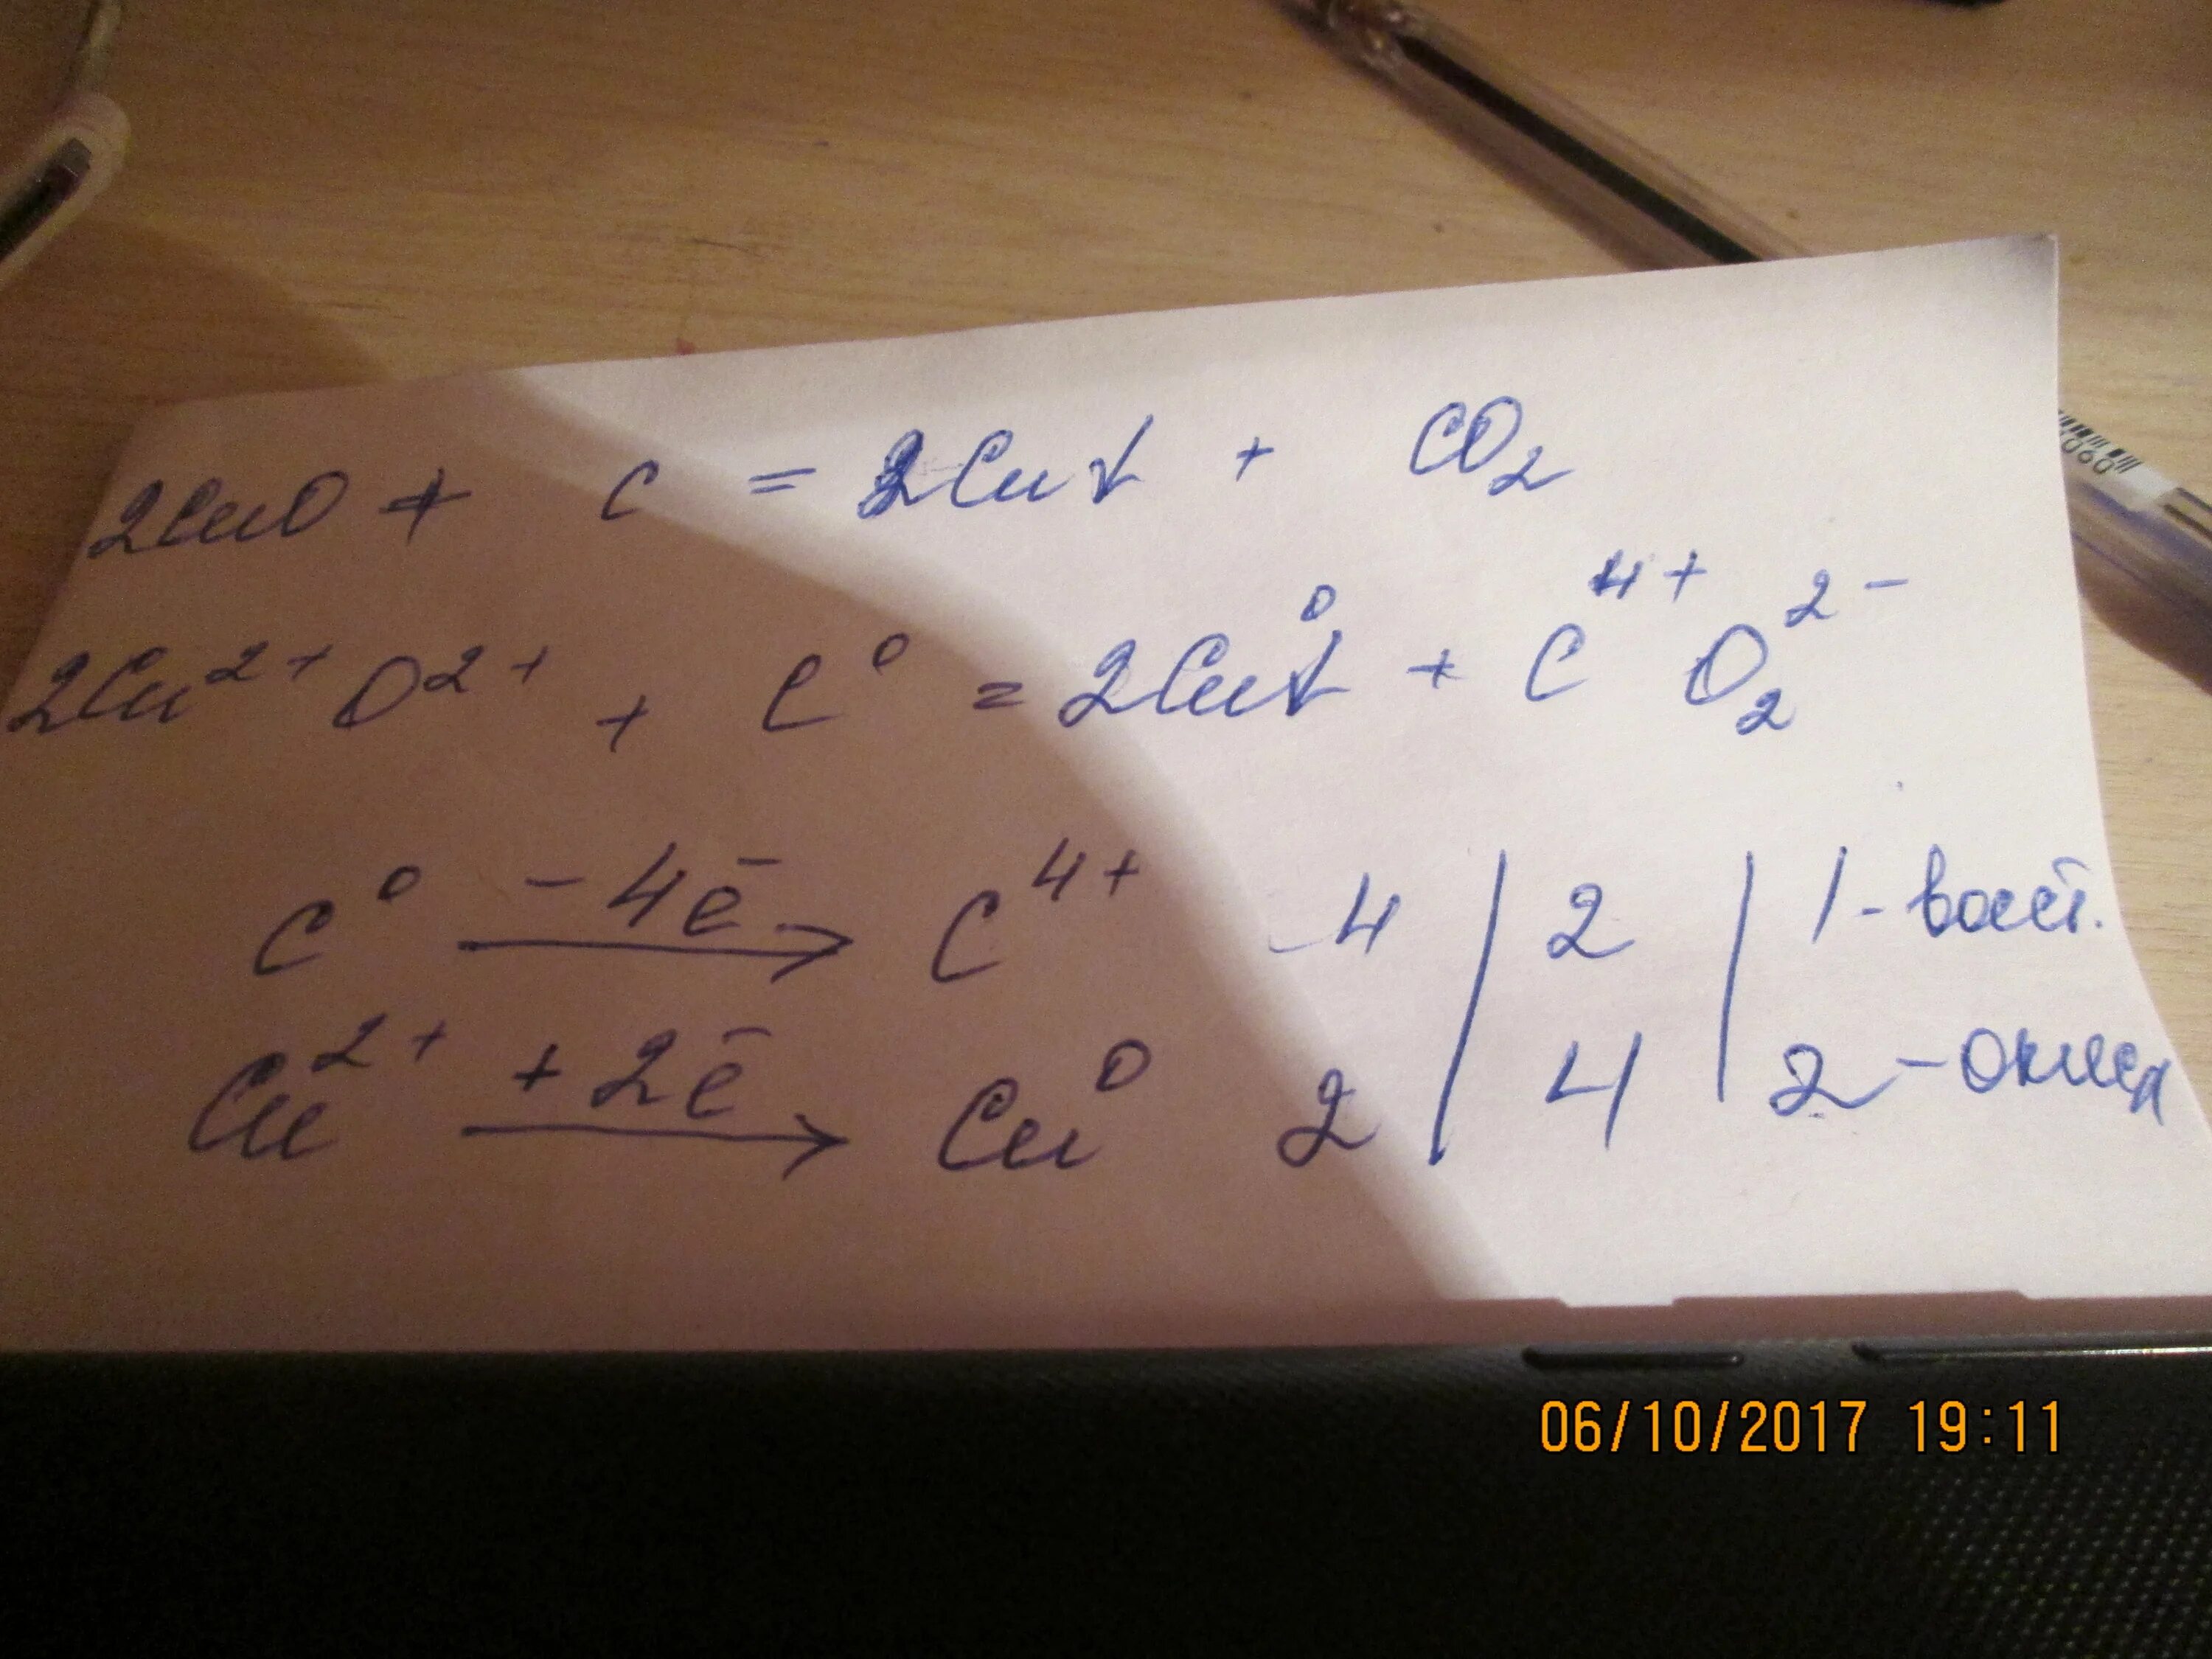 2CuO + C = 2Cu↓ + CO₂
2Cu²⁺O²⁺ + C⁰ = 2Cu⁰↓ + C⁴⁺O₂²⁻
C⁰ −4ē→ C⁴⁺ -4 | 2 | 1-восст.
Cu²⁺ +2ē→ Cu⁰ 2 | 4 | 2-окисл
06/10/2017 19:11